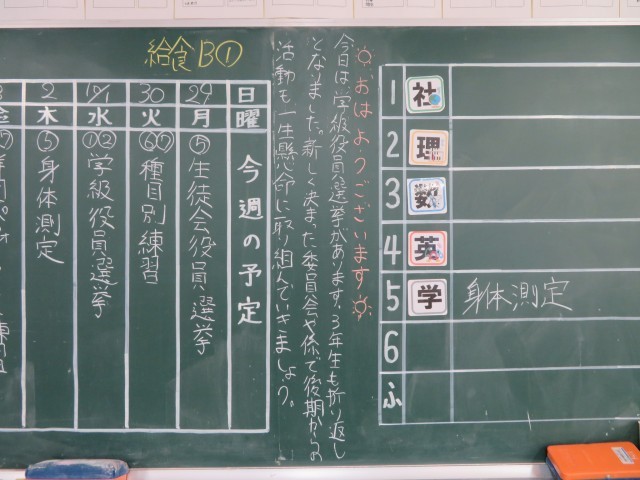 給食B①
日曜 今週の予定
29 月 ⑤生徒会役員選挙
30 火 ⑥⑦種目別練習
10/1 水 ①②学級役員選挙
2 木 ⑤身体測定
おはようございます
今日は学級役員選挙があります。3年生も折り返し
となりました。新しく決まった委員会や係で後期からの
活動も一生懸命に取り組んでいきましょう。
1 社
2 理
3 数
4 英
5 学 身体測定
6
ふ